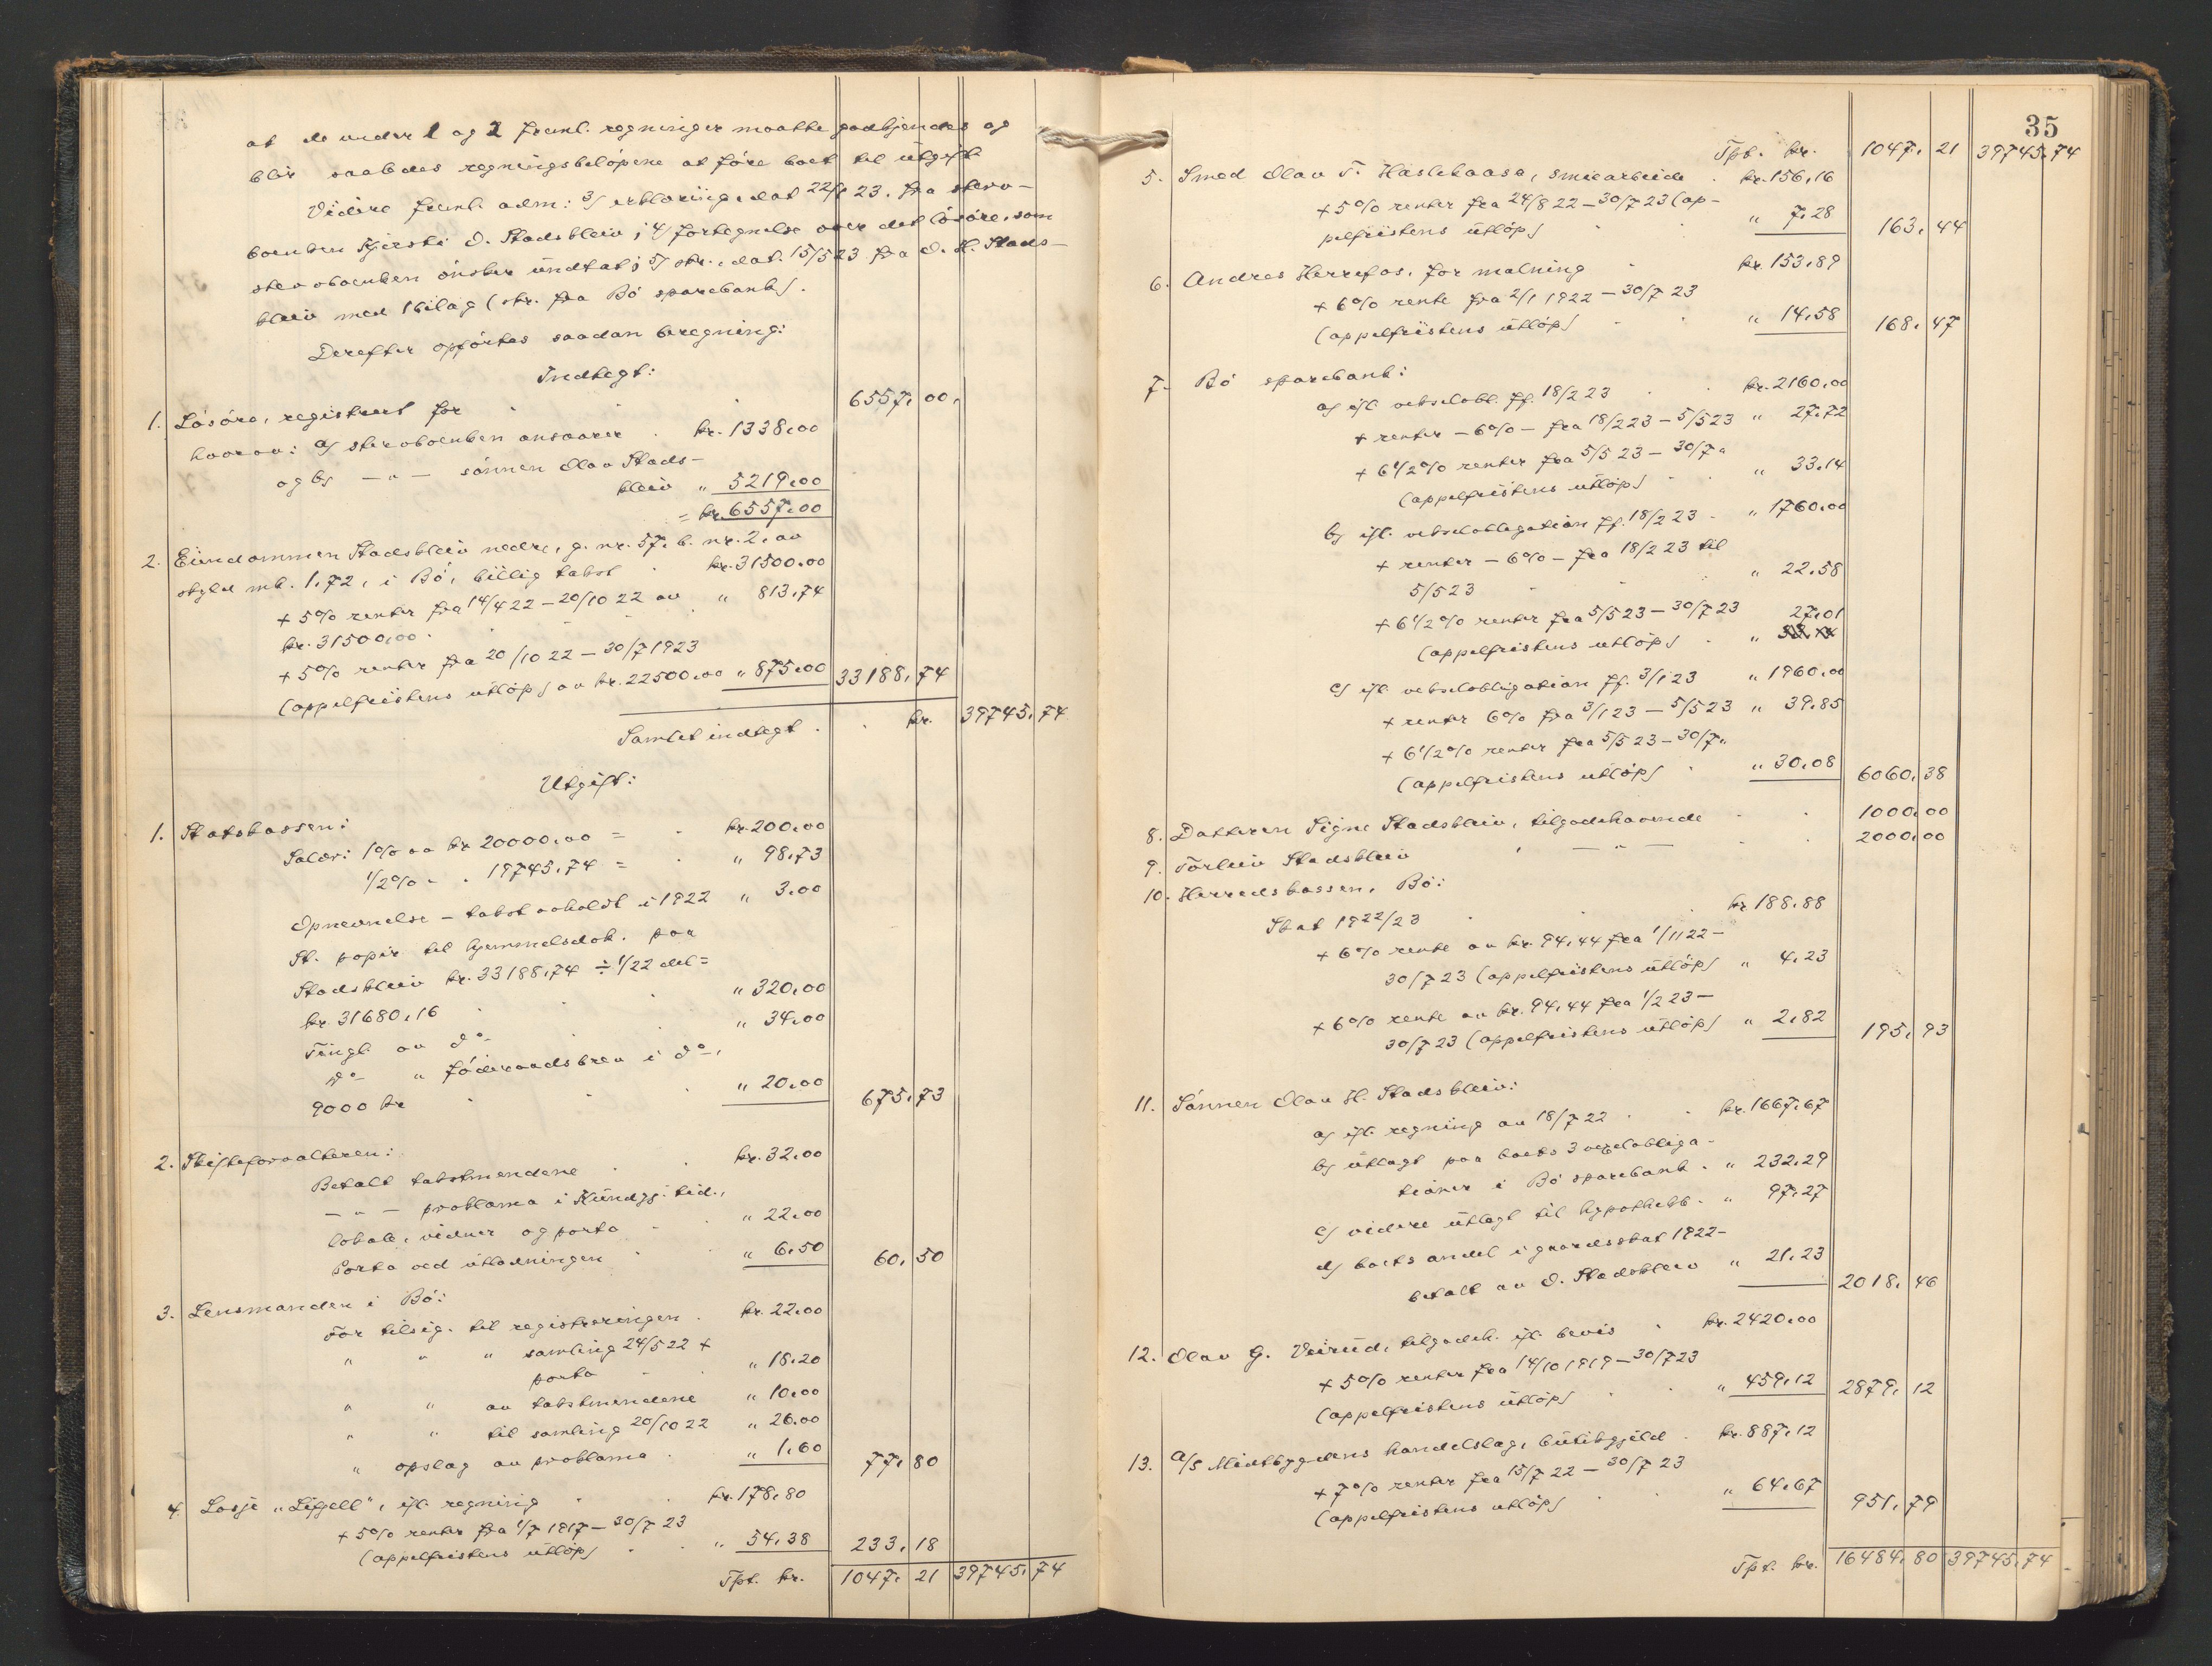 at de under 1 og 2 freml. regninger maatte godkjendes og
blir saaledes regningsbelöpene at före boet til utgift.
Videre freml. adm: 3) erklæring, dat 22/1 23. fra sterv-
boenken Kjersti O. Stadskleiv; 4) fortegnelse over det lösöre, som
stervboenken önsker undtat; 5) skr., dat. 15/5 23 fra O. H. Stads-
kleiv med 1 bilag (skr. fra Bö sparebank).
Derefter opförtes saadan beregning:
Indtegt:
1. Lösöre, registrert for . . 6557,00,
hvorav: a) stervboenken ansvarer . kr. 1338,00
og b) — " — sönnen Olav Stads-
kleiv " 5219,00
= kr. 6557,00
2. Eiendommen Stadskleiv nedre, g. nr. 57, b. nr. 2, av
skyld mk. 1,72, i Bö, billig takst . kr. 31500,00
+ 5% renter fra 14/4 22 – 20/10 22 av " 813,74
kr. 31500,00 .
+ 5% renter fra 20/10 22 – 30/7 1923
(appelfristens utlöp) av kr. 22500,00 " 875,00 33188,74
Samlet indtegt . . kr. 39745,74
Utgift:
1. Statskassen:
Salær: 1% av kr 20000,00 = . kr. 200,00
1/2% " . 19745,74 = . " 98,73
Opnevnelse – takst avholdt i 1922 " 3,00
St. papir til hjemmelsdok. paa
Stadskleiv kr. 33188,74 ÷ 1/22 del =
kr. 31680,16 . . . " 320,00
Tingl. av do . . " 34,00
do " föderaadsbrev i do,
9000 kr . . . " 20,00 675,73
2. Skifteforvalteren:
Betalt takstmendene . . kr. 32,00
— " — proklama i Kundgj. tid.,
lokale, vidner og porto . . " 22,00
Porto ved utlodningen . . " 6,50 60,50
3. Lensmanden i Bö:
For tilsig. til registreringen . kr. 22,00
" " " samling 24/5 22 +
porto . " 18,20
" " av takstmendene " 10,00
" " til samling 20/10 22 " 26,00
" opslag av proklama . " 1,60 77,80
4. Losje "Lifjell", ifl. regning . . kr. 178,80
+ 5% renter fra 1/7 1917 – 30/7 23
(appelfristens utlöp) . . " 54,38 233,18
Tpt. kr. 1047,21 39745,74
35
Tpt. kr. 1047,21 39745,74
5. Smed Olav T. Haslekaasa, smiearbeide . kr. 156,16
+ 5% renter fra 24/8 22 – 30/7 23 (ap-
pelfristens utlöp) . . " 7,28 163,44
6. Andres Herrefos, for malning . kr. 153,89
+ 6% rente fra 2/1 1922 – 30/7 23
(appelfristens utlöp) . . " 14,58 168,47
7. Bö sparebank:
a) ifl. vekselobl. pf. 18/2 23 . kr. 2160,00
+ renter – 6% – fra 18/2 23 – 5/5 23 " 27,72
+ 6 1/2% renter fra 5/5 23 – 30/7 "
(appelfristens utlöp) . . " 33,14
b) ifl. vekselobligation pf. 18/2 23 . " 1760,00
+ renter – 6% – fra 18/2 23 til
5/5 23 . . " 22,58
+ 6 1/2% renter fra 5/5 23 – 30/7 23 27,01
(appelfristens utlöp) . "
c) ifl. vekselobligation pf. 3/1 23 " 1960,00
+ renter 6% fra 3/1 23 – 5/5 23 " 39,85
+ 6 1/2% renter fra 5/5 23 – 30/7 "
(appelfristens utlöp) . " 30,08 6060,38
8. Datteren Signe Stadskleiv, tilgodehavende . . 1000,00
9. Torleiv Stadskleiv . — " — . . 2000,00
10. Herredskassen, Bö:
Skat 1922/23 . . . kr 188,88
+ 6% rente av kr. 94,44 fra 1/11 22 –
30/7 23 (appelfristens utlöp) " 4,23
+ 6% rente av kr. 94,44 fra 1/2 23 –
30/7 23 (appelfristens utlöp) " 2,82 195,93
11. Sönnen Olav H. Stadskleiv:
a) ifl. regning av 18/7 22 . . kr. 1667,67
b) utlagt paa boets 3 vexelobliga-
tioner i Bö sparebank . " 232,29
c) videre utlagt til hypothekb. . " 97,27
d) boets andel i gaardsskat 1922 –
betalt av O. Stadskleiv " 21,23 2018,46
12. Olav G. Veirud, tilgodeh. ifl. bevis . kr. 2420,00
+ 5% renter fra 14/10 1919 – 30/7 23
(appelfristens utlöp) . . " 459,12 2879,12
13. A/S Midtbygdens handelslag, butikgjeld . kr. 887,12
+ 7% renter fra 15/7 22 – 30/7 23
(appelfristens utlöp) . . " 64,67 951,79
Tpt. kr. 16484,80 39745,74